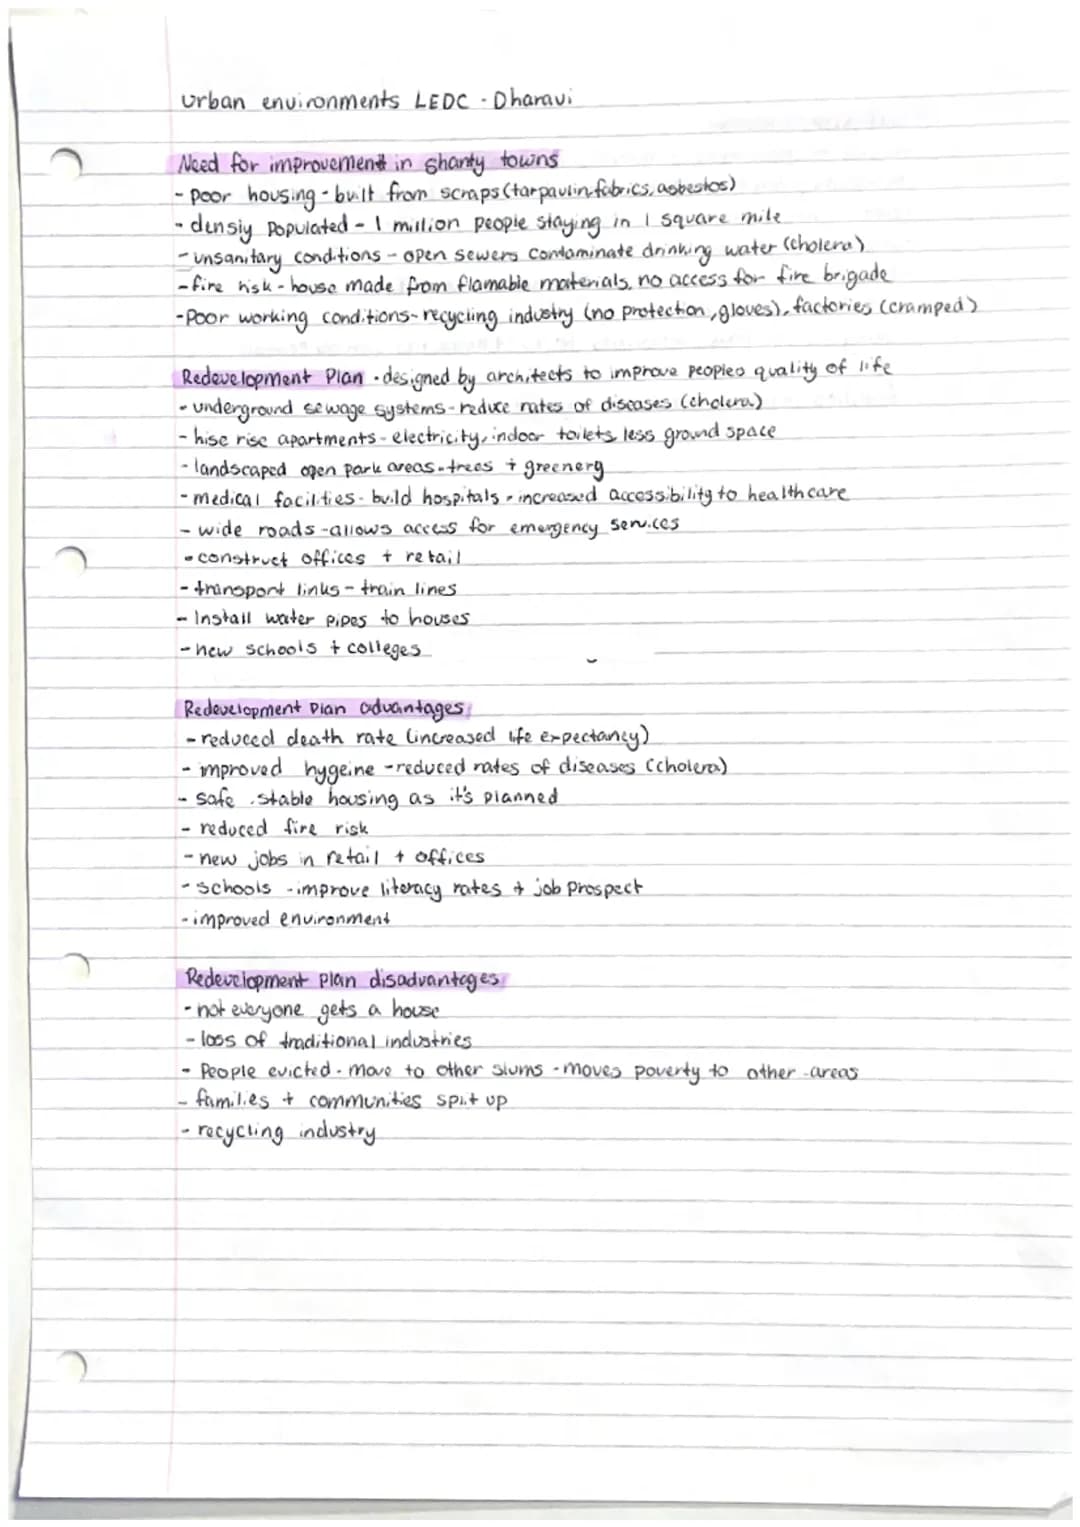 Urban environments LEDC - Dharavi
Need for improvement in shanty towns
- Poor housing - built from scraps (tarpaulin, fabrics, asbestos)
- densly Populated - 1 million people staying in 1 square mile
- unsanitary conditions - open sewers contaminate drinking water (cholera)
- fire risk - house made from flamable materials, no access for fire brigade
- Poor working conditions - recycling industry (no protection, gloves), factories (cramped)
Redevelopment Plan - designed by architects to improve peoples quality of life
- underground sewage systems - reduce rates of diseases (cholera)
- hise rise apartments - electricity, indoor toilets, less ground space
- landscaped open park areas - trees + greenery
- medical facilities - build hospitals - increased accessibility to healthcare
- wide roads - allows access for emergency services
- construct offices + retail
- transport links - train lines
- Install water pipes to houses
- new schools + colleges
Redevelopment Plan advantages
- reduced death rate (increased life expectancy)
- improved hygeine - reduced rates of diseases (cholera)
- safe, stable housing as it's planned
- reduced fire risk
- new jobs in retail + offices
- schools - improve literacy rates + job prospect
- improved environment
Redevelopment plan disadvantages
- not everyone gets a house
- loss of traditional industries
- People evicted - move to other slums - moves poverty to other areas
- families + communities split up
- recycling industry